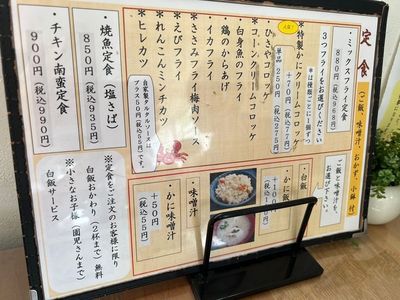 定食
(ご飯、味噌汁、おかず、小鉢 付)
・ミックスフライ定食
880円(税込968円)
3つフライをお選びください
※は種類ごとに1個ずつ
*特製かにクリームコロッケ
人気!
+70円(税込77円)
単品 250円(税込275円)
*ひさやコロッケ
*コーンクリームコロッケ
*白身魚のフライ
*鶏のからあげ
*イカフライ
*ささみフライ梅肉ソース
*えびフライ
*れんこんミンチカツ
*ヒレカツ
自家製タルタルソースは、
プラス50円(税込55円)です。
・焼魚定食(塩さば)
850円(税込935円)
・チキン南蛮定食
900円(税込990円)
ご飯と味噌汁を、
お選び下さい。
・白飯
・かに飯
+100円
・味噌汁
・かに味噌汁
+50円
(税込55円)
※定食をご注文のお客様に限り
白飯おかわり(2杯まで)無料
※小さなお子様(園児さんまで)
白飯サービス